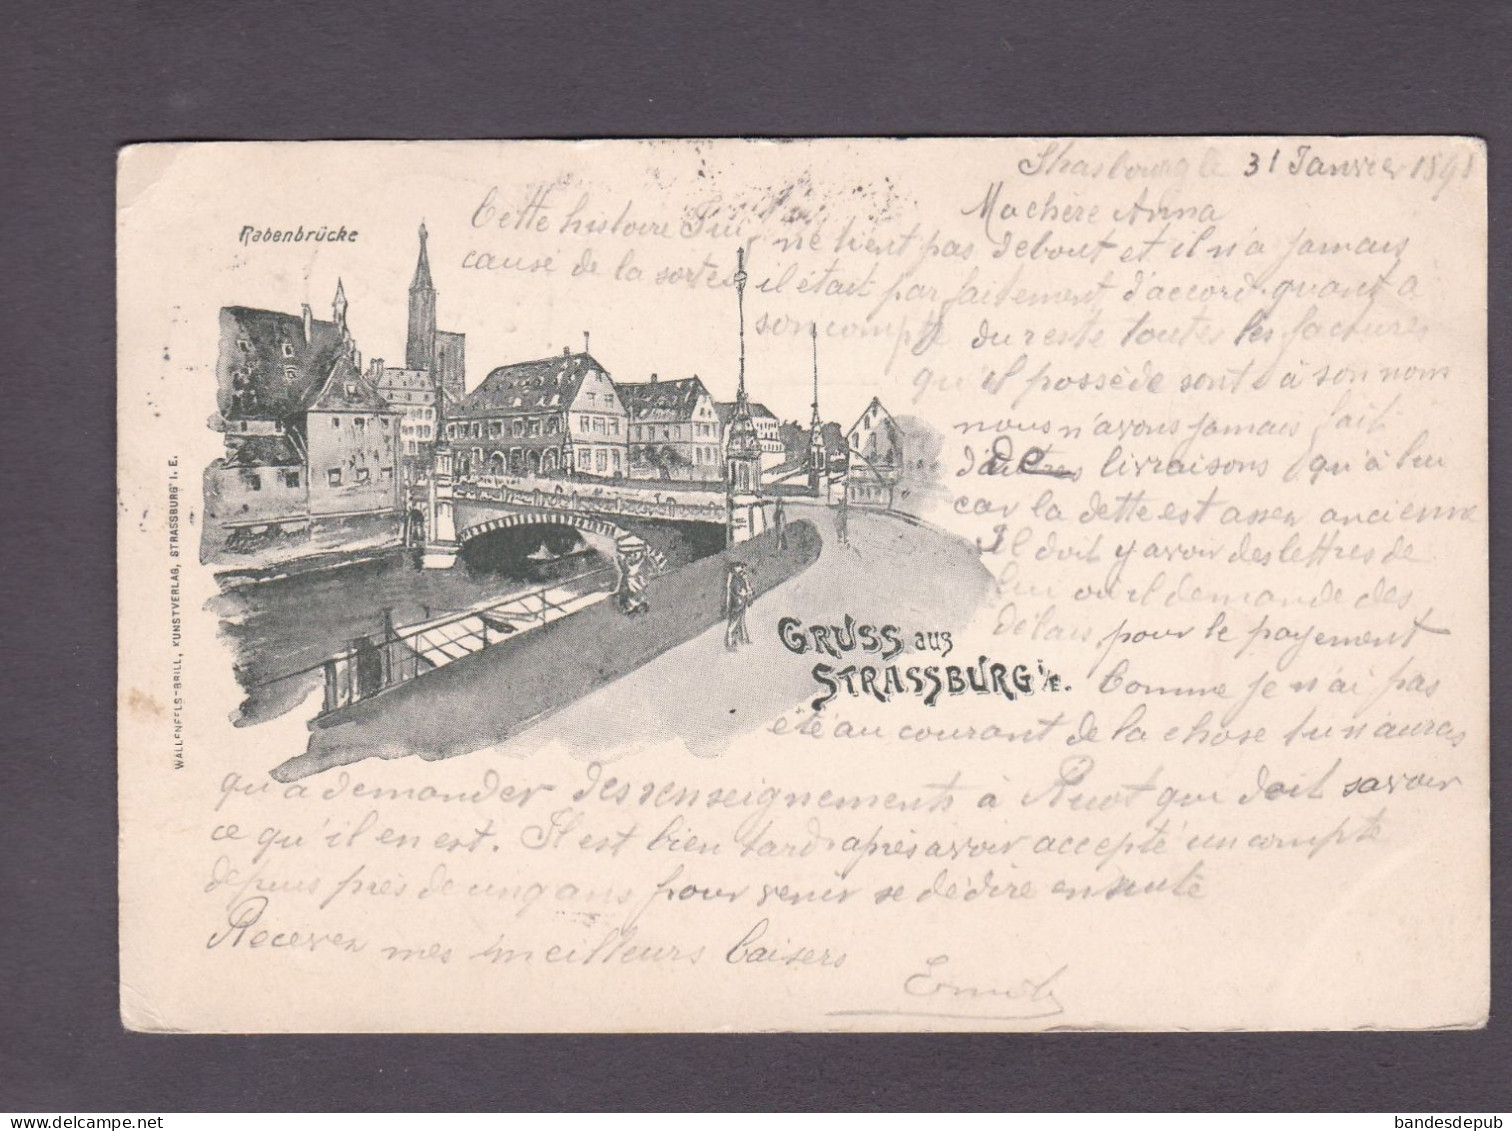 Strasbourg le 31 Janvier 1898
Ma chère Anna
Cette histoire ne tient pas debout et il n'a jamais
causé de la sorte il était parfaitement d'accord quant à
son compte du reste toutes les factures
qu'il possède sont à son nom
nous n'avons jamais fait
de livraisons qu'à lui
car la dette est assez ancienne
Il doit y avoir des lettres de
lui où il demande des
délais pour le payement
Comme je n'ai pas
été au courant de la chose tu n'auras
qu'a demander des renseignements à Ruot qui doit savoir
ce qu'il en est. Il est bien tard après avoir accepté un compte
depuis près de cinq ans pour venir se dédire ensuite
Recevez mes meilleurs baisers
Emile
Rabenbrücke
GRUSS aus
STRASSBURG i/E.
WALLENFELS-BRILL, KUNSTVERLAG, STRASSBURG I. E.
bandesdepub